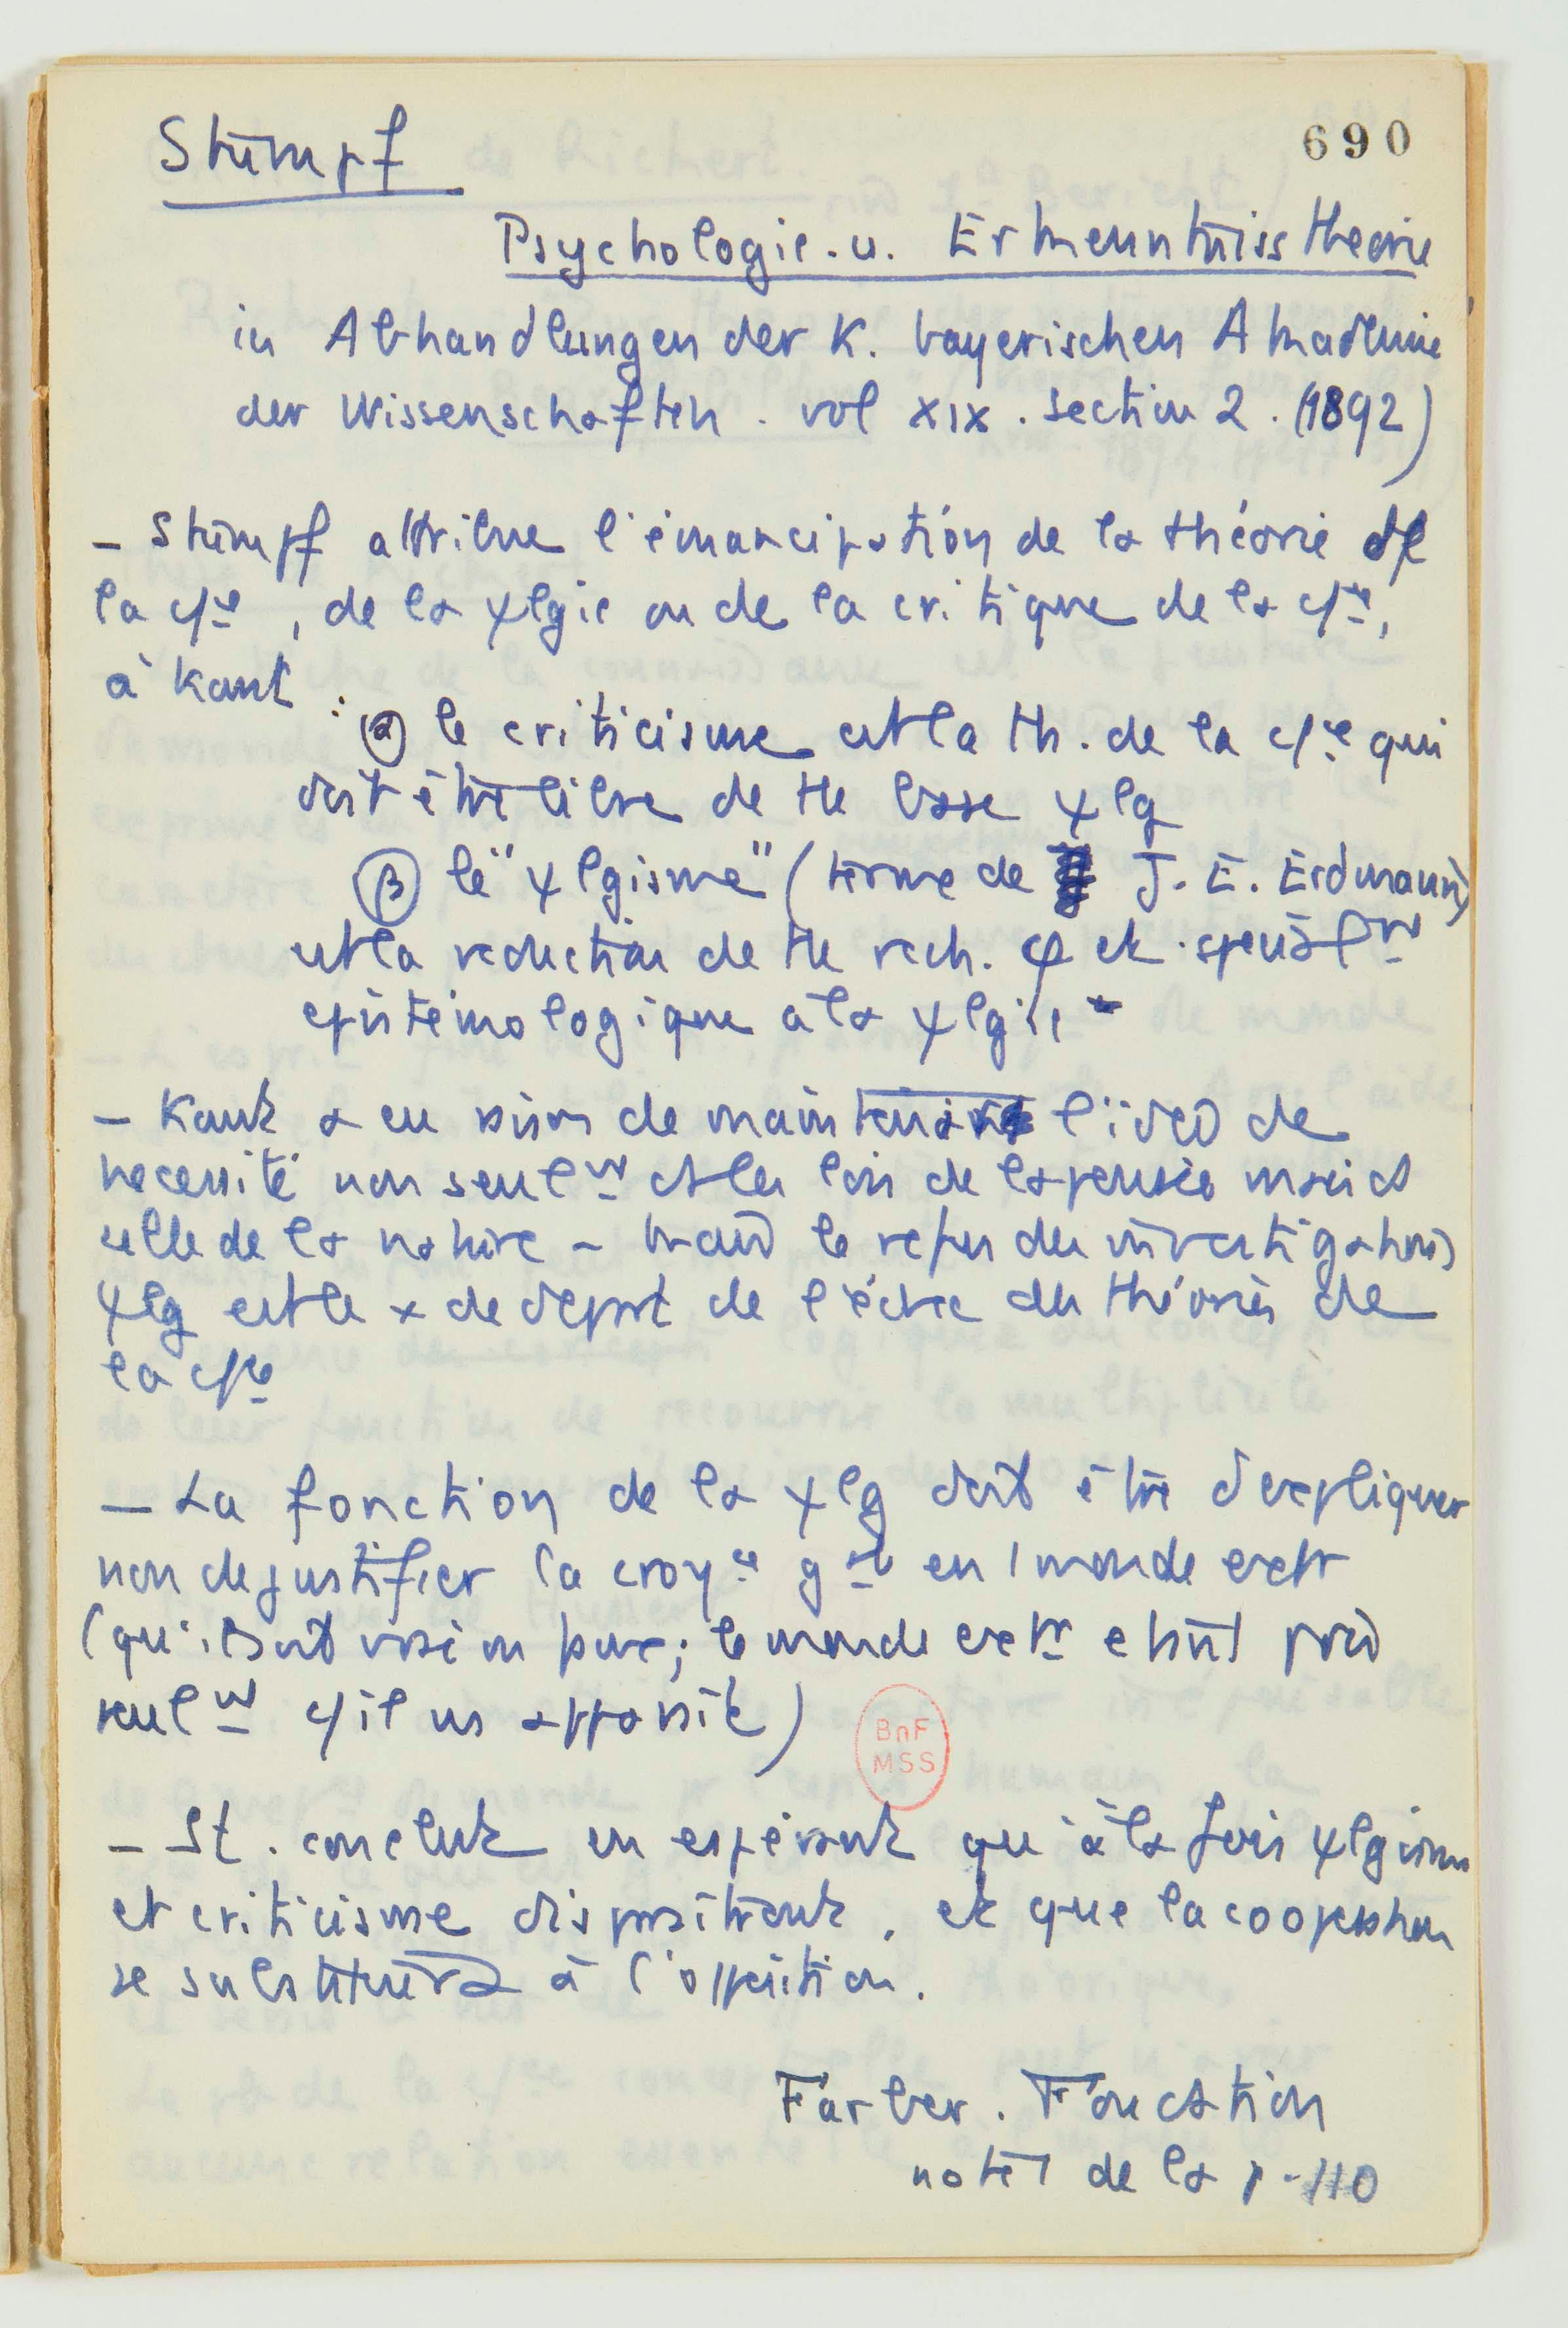 690
Stumpf
Psychologie. u. Erkenntniss theorie
in Abhandlungen der K. bayerischen Akademie
der Wissenschaften. vol XIX. section 2. (1892)
– Stumpf attribue l'émancipation de la théorie de
la c/ce, de la ψlgie ou de la critique de la c/ce,
à Kant :
α le criticisme est la th. de la c/ce qui
doit être libre de tte base ψlg
β le "ψlgisme" (terme de J. E. Erdmann)
est la reduction de tte rech. φ et spécialmt
epistémologique à la ψlgie
– Kant a eu raison de maintenir l'idée de
necessité non seulmt ds les lois de la pensée mais ds
celle de la nature – mais le refus des investigations
ψlg est le × de départ de l'échec des théories de
la c/ce
– La fonction de la ψlg doit être d'expliquer
non de justifier la croyce gale en 1 monde extr
(qu'il soit vrai ou pure; le monde extr etant pris
seulmt c/ il ns apparaît)
BnF
MSS
– St. conclut en espérant qu'à la fois ψlgisme
et criticisme disparaitront, et que la cooperation
se substituera à l'opposition.
Farber. Fondation
note 1 de la p. 110